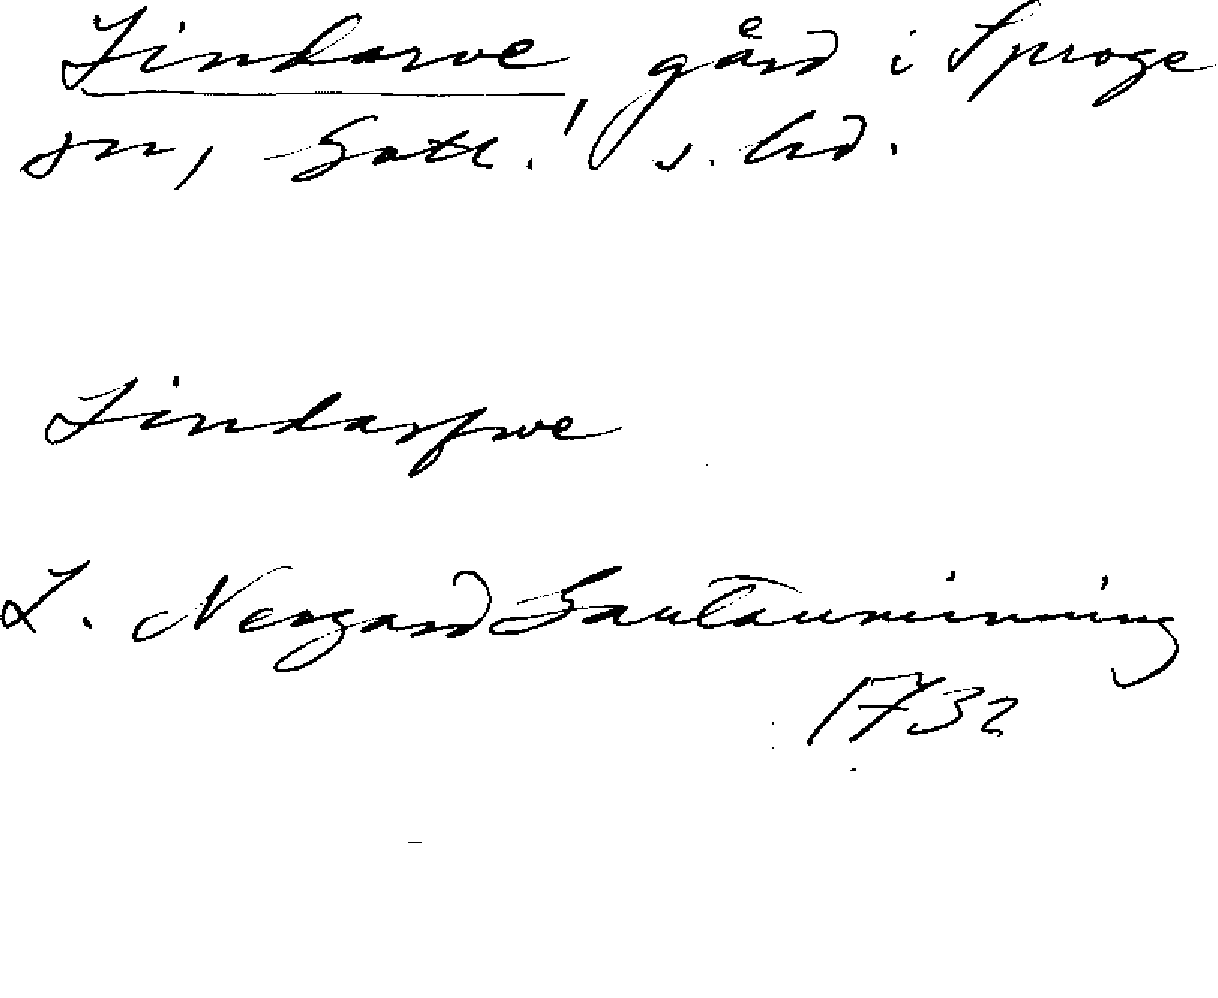 Lindarve, gård i Sproge
sn, Gotl. s. hd.
Lindarfwe
L. Neogard Gautauminning
1732